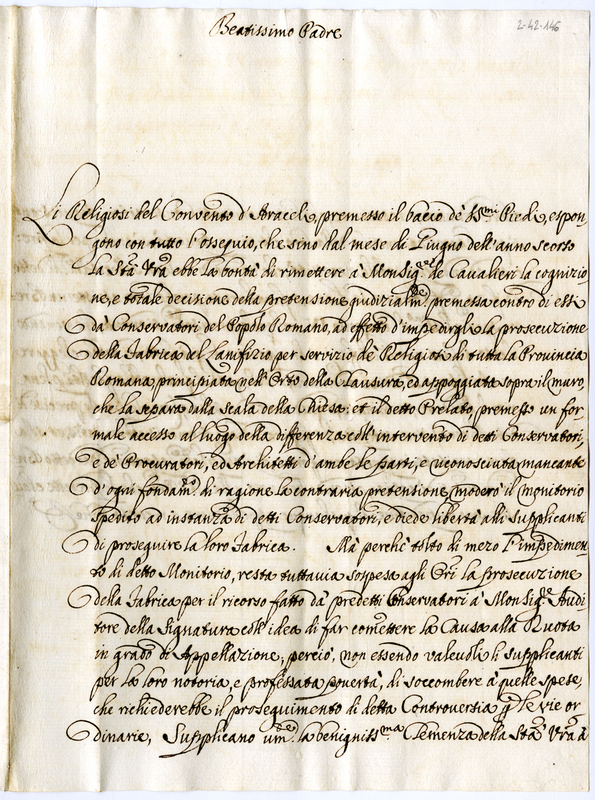 Beatissimo Padre
2-42-146
Li Religiosi del Convento d'Araceli, premesso il bacio de' SSmi Piedi, espon
gono con tutto l'ossequio, che sino dal mese di Giugno dell'anno scorso
la Stà Vrà ebbe la bontà di rimettere à Monsigr de Cavalieri la cognizio
ne, e totale decisione della pretensione giudizialmte premessa contro di essi
dà Conservatori del Popolo Romano, ad effetto d'impedirgli la prosecuzione
della fabrica del Lanifizio per servizio de' Religiosi di tutta la Provincia
Romana principiata nell'Orto della Clausura, ed appoggiata sopra il muro,
che la separa dalla scala della Chiesa: et il detto Prelato, premesso un for
male accesso al luogo della differenza coll'intervento di detti Conservatori,
e de' Procuratori, ed Architetti d'ambe le parti, e riconosciuta mancante
d'ogni fondamto di ragione la contraria pretensione, moderò il monitorio
spedito ad instanza di detti Conservatori, e diede libertà alli supplicanti
di proseguire la loro fabrica. Mà perche tolto di mezo l'impedimen
to di detto Monitorio, resta tuttavia sospesa agli Ori la prosecuzione
della fabrica per il ricorso fatto dà predetti Conservatori à Monsigre Audi
tore della Signatura coll'idea di far comettere la Causa alla Ruota
in grado di Appellazione, perciò, non essendo valevoli li supplicanti
per la loro notoria, e professata povertà, di soccombere à quelle spese,
che richiederebbe il proseguimento di detta Controversia p le vie or
dinarie, Supplicano umte la benignissma Clemenza della Stà Vrà à